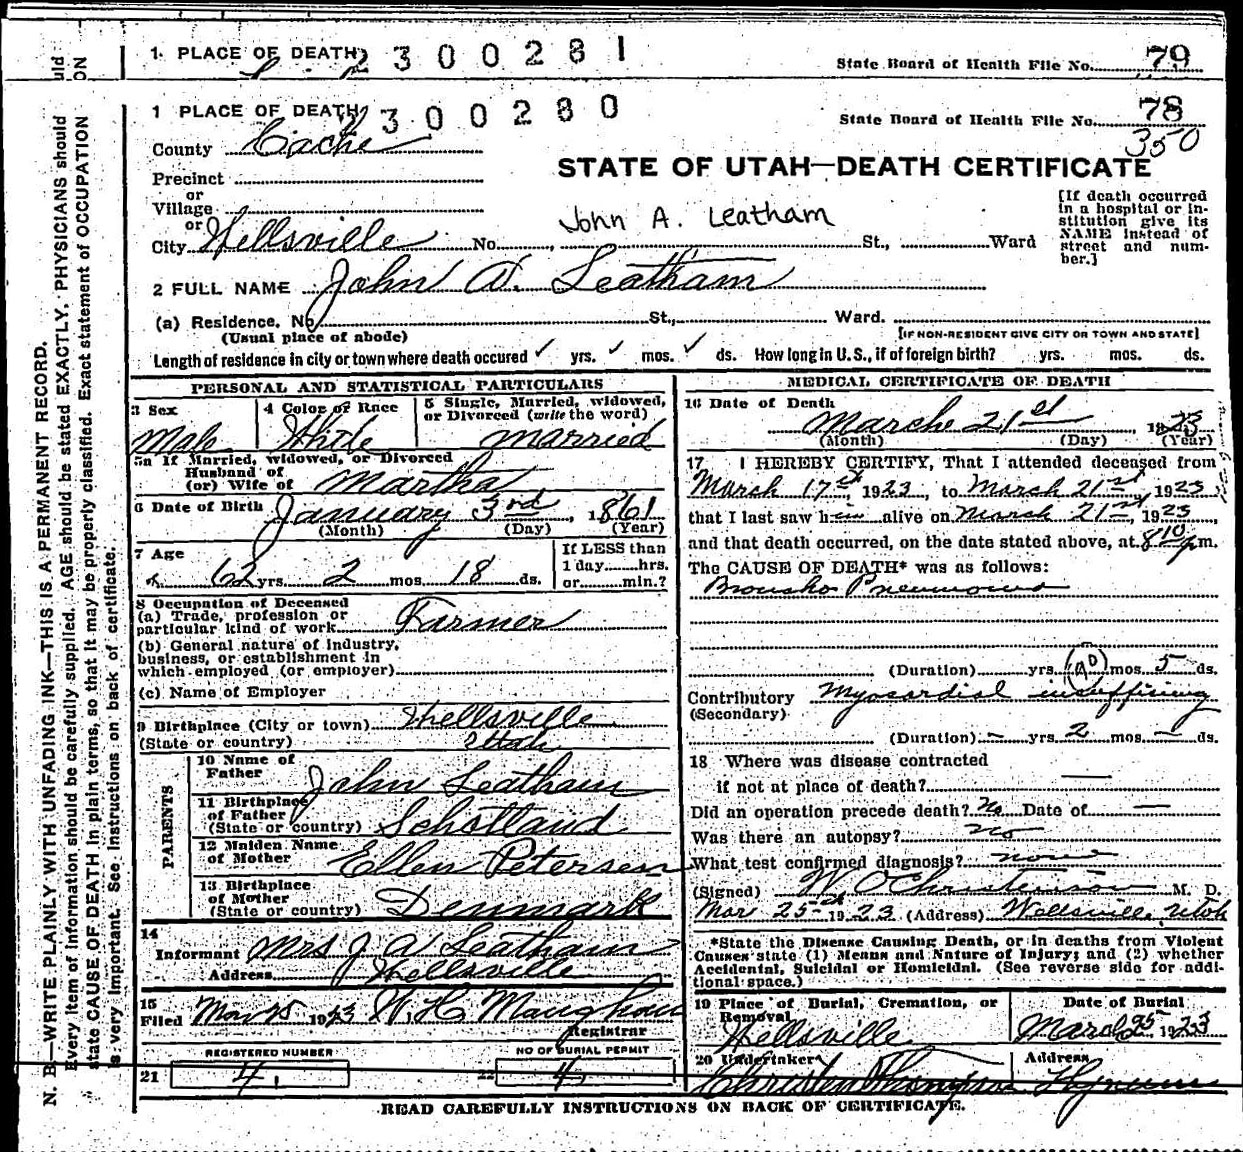 1 PLACE OF DEATH 2300281 State Board of Health File No. 79
1 PLACE OF DEATH 2300280 State Board of Health File No. 78
350
County Cache
STATE OF UTAH—DEATH CERTIFICATE
Precinct
or
Village
or
City Wellsville No. , St., Ward
John A. Leatham
[If death occurred
in a hospital or in-
stitution give its
NAME instead of
street and num-
ber.]
2 FULL NAME John A. Leatham
(a) Residence. No. St., Ward.
(Usual place of abode) [IF NON-RESIDENT GIVE CITY OR TOWN AND STATE]
Length of residence in city or town where death occured ✓ yrs. ✓ mos. ✓ ds. How long in U.S., if of foreign birth? yrs. mos. ds.
PERSONAL AND STATISTICAL PARTICULARS
3 Sex
Male
4 Color or Race
White
5 Single, Married, widowed,
or Divorced (write the word)
married
5a If Married, widowed, or Divorced
Husband of
(or) Wife of Martha
6 Date of Birth January 3rd, 1861
(Month) (Day) (Year)
7 Age
62 yrs. 2 mos. 18 ds.
If LESS than
1 day hrs.
or min.?
8 Occupation of Deceased
(a) Trade, profession or
particular kind of work Farmer
(b) General nature of Industry,
business, or establishment in
which employed (or employer)
(c) Name of Employer
9 Birthplace (City or town) Wellsville
(State or country) Utah
PARENTS
10 Name of
Father John Leatham
11 Birthplace
of Father
(State or country) Schotland
12 Maiden Name
of Mother Ellen Petersen
13 Birthplace
of Mother
(State or country) Denmark
14
Informant Mrs J A Leatham
Address Wellsville
15
Filed Mar 25 1923 W. H. Maughan
Registrar
REGISTERED NUMBER
21 4
NO OF BURIAL PERMIT
22 4
MEDICAL CERTIFICATE OF DEATH
16 Date of Death
Marche 21st 1923
(Month) (Day) (Year)
17 I HEREBY CERTIFY, That I attended deceased from
March 17th, 1923, to March 21st, 1923
that I last saw him alive on March 21st, 1923,
and that death occurred, on the date stated above, at 8 10 p m.
The CAUSE OF DEATH* was as follows:
Bronsho Pneumonia
(Duration) yrs. mos. 5 ds.
Contributory Myocardial
(Secondary)
(Duration) – yrs. 2 mos. – ds.
18 Where was disease contracted
if not at place of death? —
Did an operation precede death? No Date of —
Was there an autopsy? no
What test confirmed diagnosis? none
(Signed) W. O Christenson M. D.
Mar 25th 1923 (Address) Wellsville, Utah
*State the Disease Causing Death, or in deaths from Violent
Causes state (1) Means and Nature of Injury; and (2) whether
Accidental, Suicidal or Homicidal. (See reverse side for addi-
tional space.)
19 Place of Burial, Cremation, or
Removal
Wellsville
Date of Burial
March 25 1923
20 Undertaker
Thompson
Address
Hyrum
READ CAREFULLY INSTRUCTIONS ON BACK OF CERTIFICATE.
N. B—WRITE PLAINLY WITH UNFADING INK—THIS IS A PERMANENT RECORD.
Every item of information should be carefully supplied. AGE should be stated EXACTLY. PHYSICIANS should
state CAUSE OF DEATH in plain terms, so that it may be properly classified. Exact statement of OCCUPATION
is very important. See instructions on back of certificate.